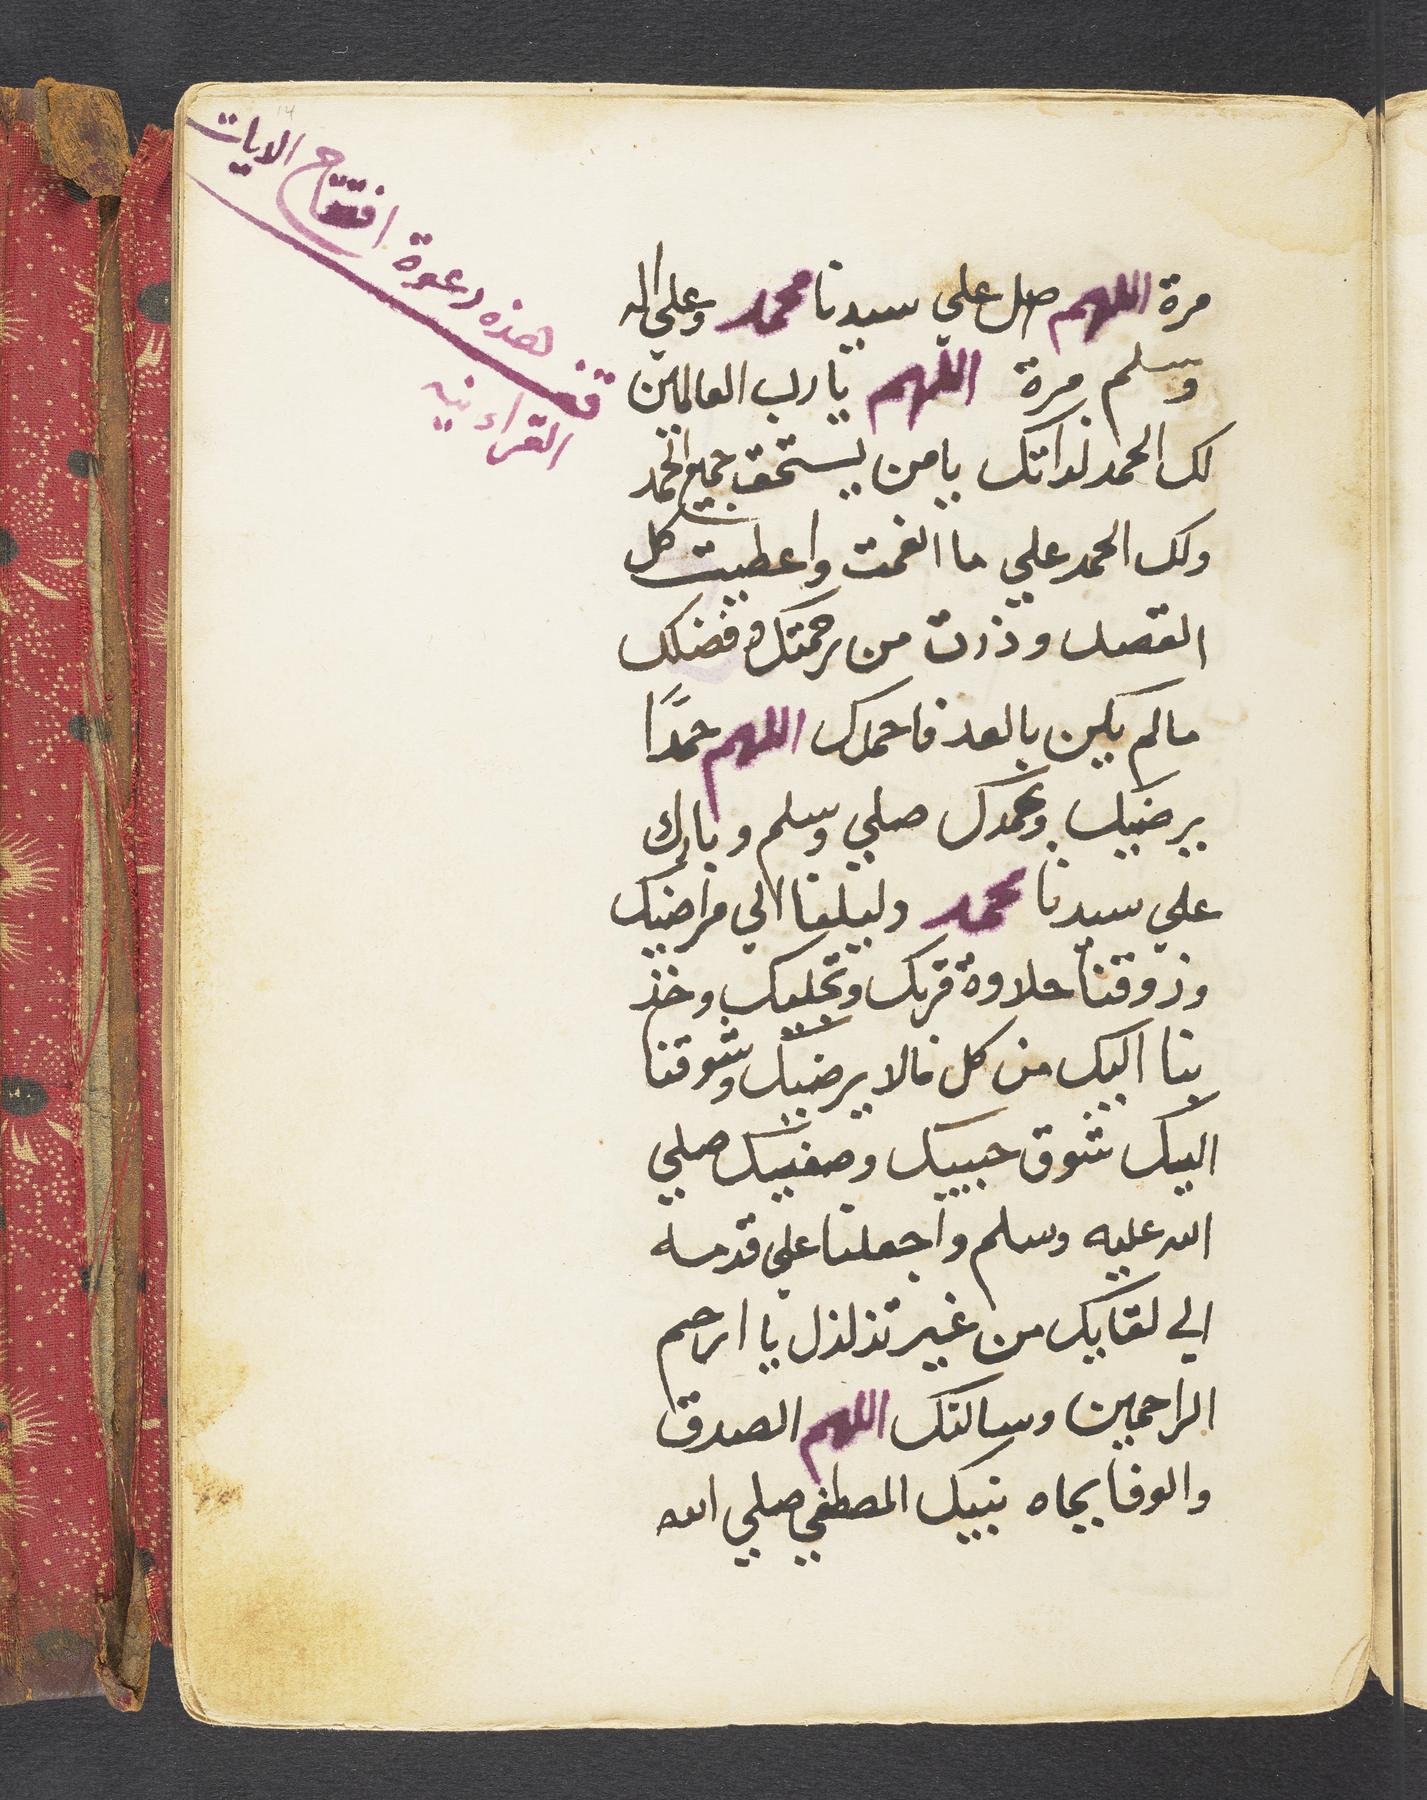 مرة اللهم صل علي سيدنا محمد وعلي اله
وسلم مرة اللهم يا رب العالمين
لك الحمد لذاتك يا من يستحق جميع الحمد
ولك الحمد علي ما انعمت واعطيت كل
وذرت من رحمتك و فضلك
مالم يكن بالعد فاحمدك اللهم حمدًا
يرضيك وبحمدك صلي وسلم وبارك
علي سيدنا محمد وليبلغنا الي مراضيك
وذوقنا حلاوة قربك وتجليك وخذ
بنا اليك من كل مالا يرضيك وشوقنا
اليك شوق حبيبك وصفيك صلي
الله عليه وسلم واجعلنا علي قدمه
الي لقايك من غير تذلذل يا ارحم
الراحمين وسالتك اللهم الصدق
والوفا بجاه نبيك المصطفي صلي الله
قف هذه دعوة افتتاح الايات
القراءنيه
14